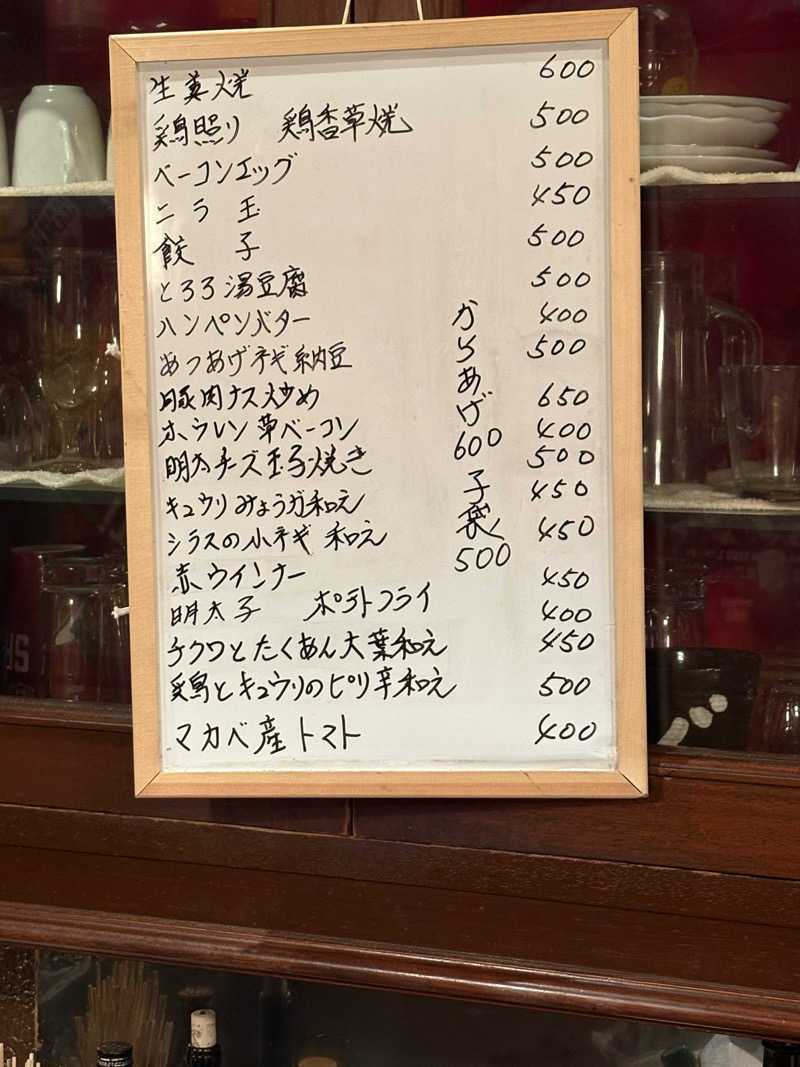 生姜焼 600
鶏照り 鶏香草焼 500
ベーコンエッグ 500
ニラ玉 450
餃子 500
とろろ湯豆腐 500
ハンペンバター 400
あつあげネギ納豆 500
豚肉ナス炒め 650
ホウレン草ベーコン 400
明太チーズ玉子焼き 500
キュウリみょうが和え 450
シラスの小ネギ和え 450
赤ウインナー 450
明太子 ポテトフライ 400
チクワとたくあん大葉和え 450
鶏とキュウリのピリ辛和え 500
マカベ産トマト 400
からあげ
600
子袋
500